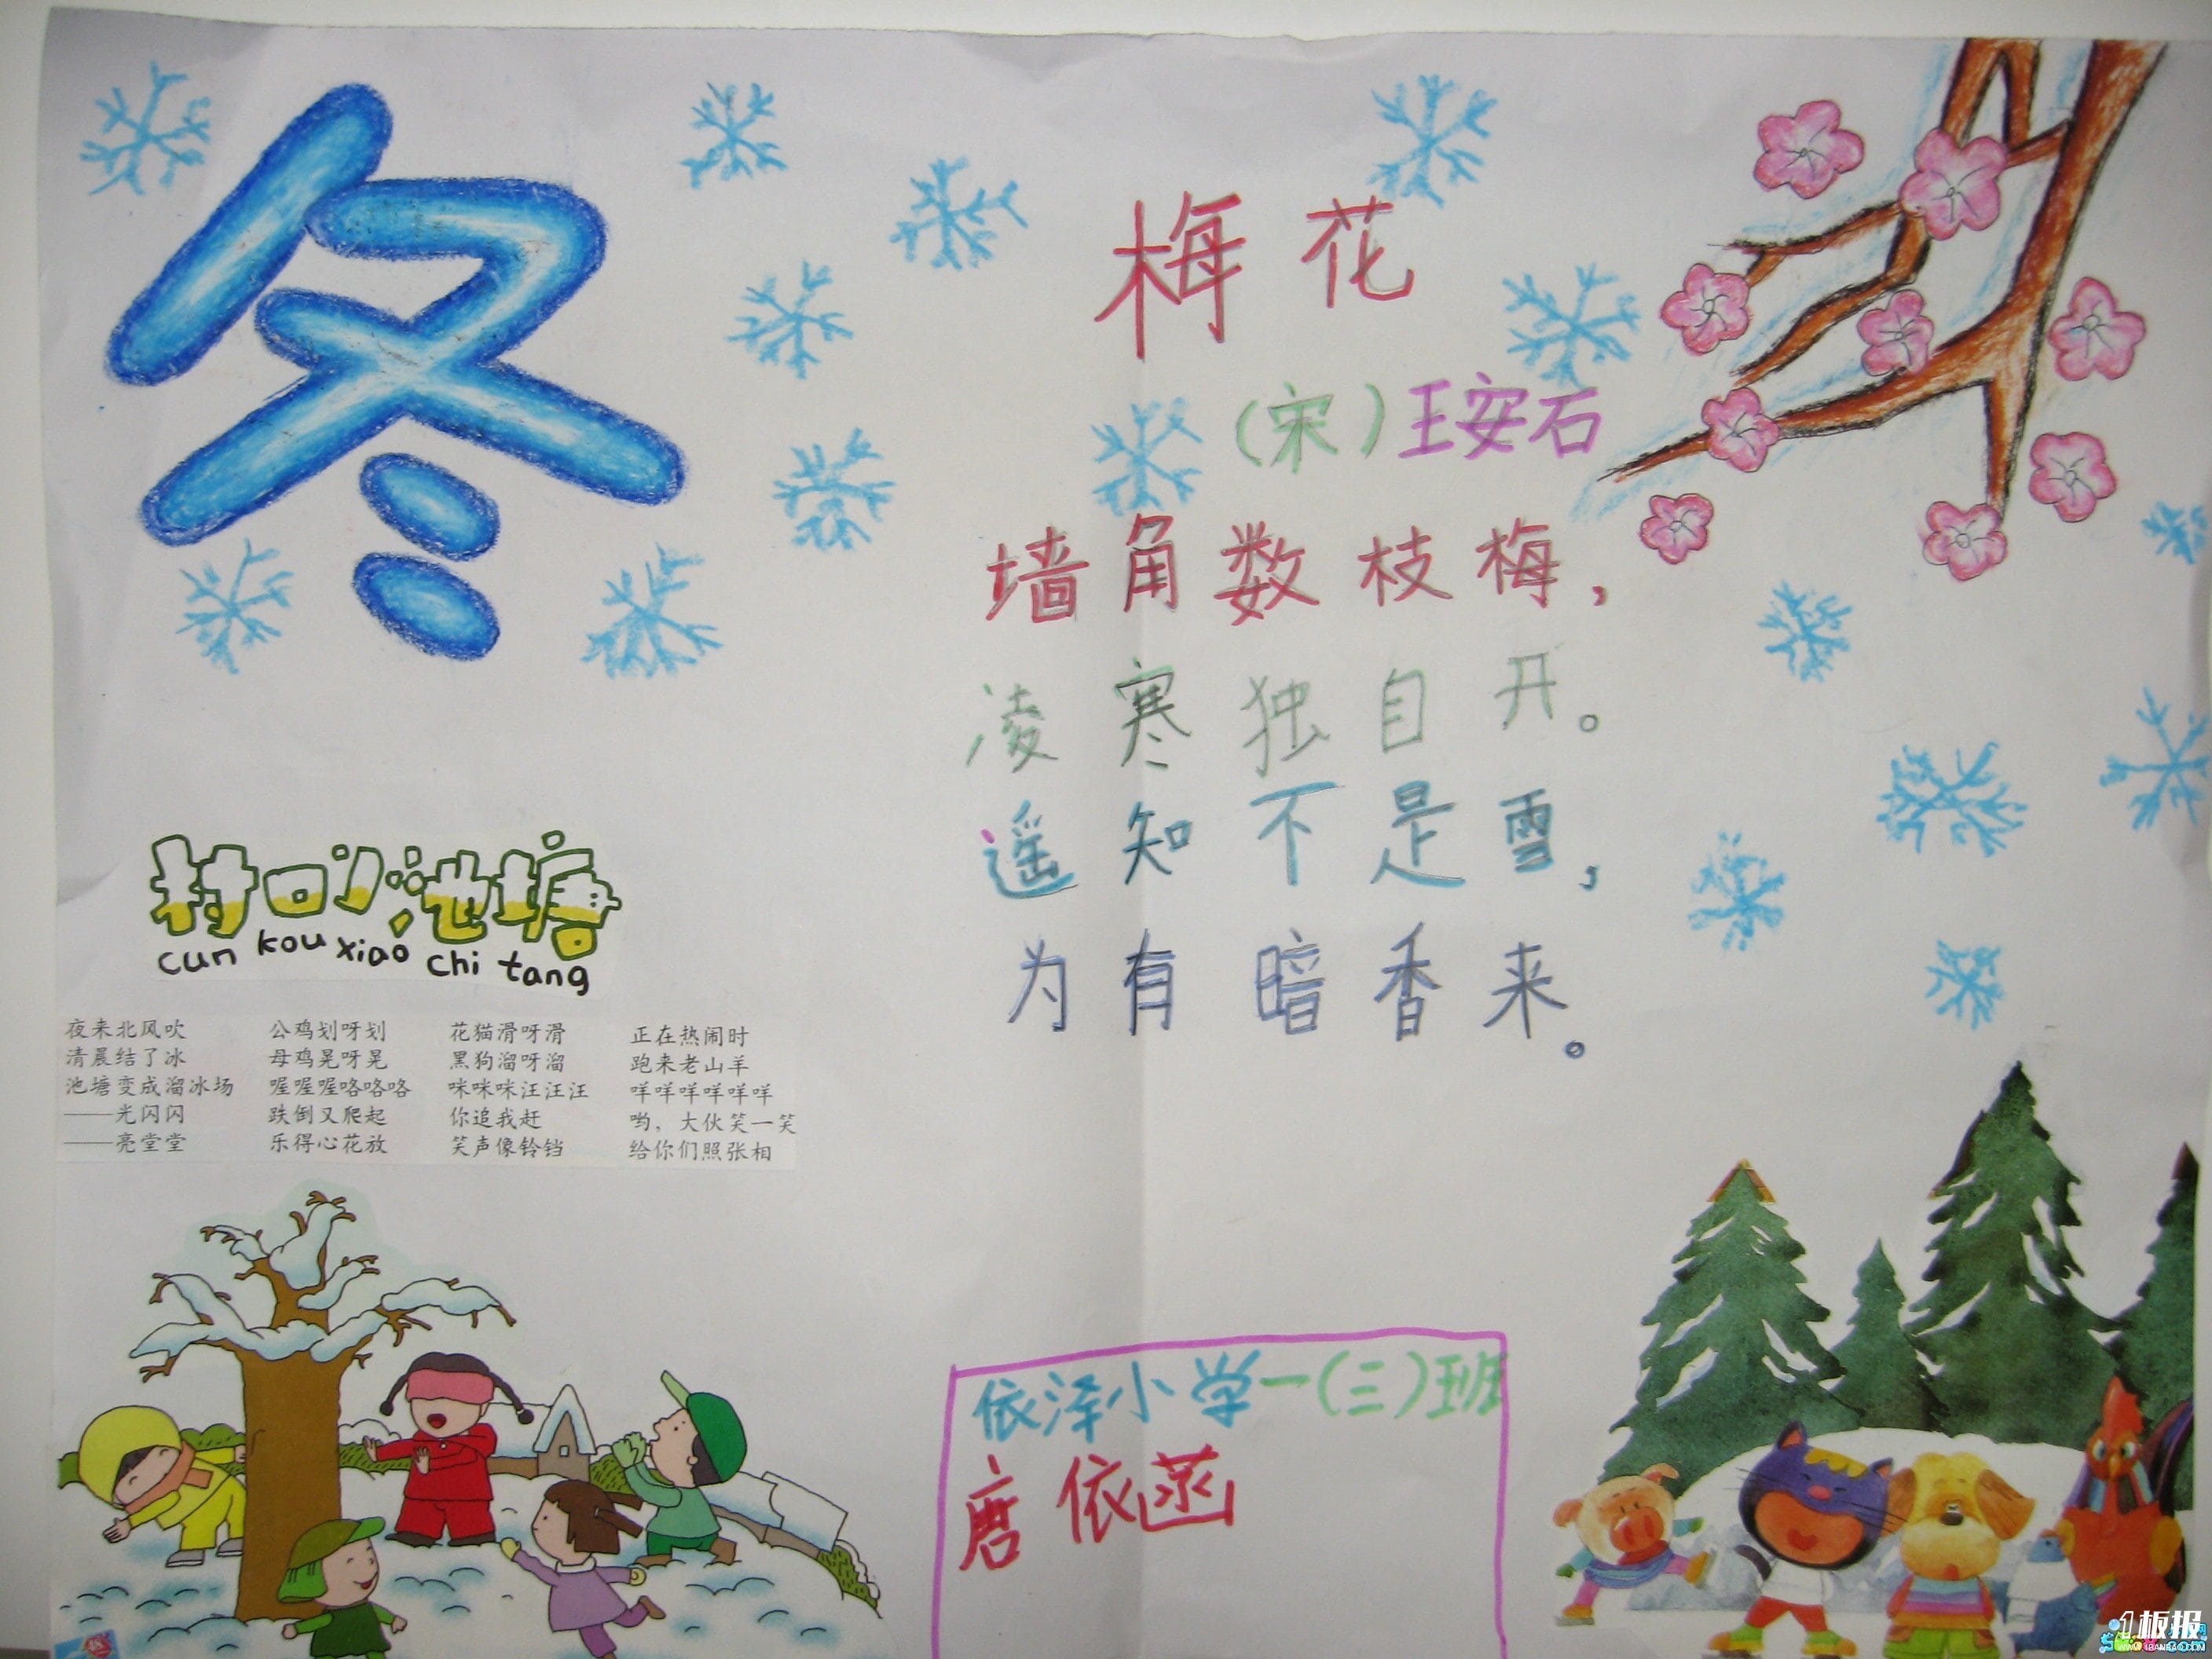 冬
梅花
（宋）王安石
墙角数枝梅，
凌寒独自开。
遥知不是雪，
为有暗香来。
村口小池塘
cun kou xiao chi tang
夜来北风吹
清晨结了冰
池塘变成溜冰场
——光闪闪
——亮堂堂
公鸡划呀划
母鸡晃呀晃
喔喔喔咯咯咯
跌倒又爬起
乐得心花放
花猫滑呀滑
黑狗溜呀溜
咪咪咪汪汪汪
你追我赶
笑声像铃铛
正在热闹时
跑来老山羊
咩咩咩咩咩咩
哟，大伙笑一笑
给你们照张相
依泽小学一（三）班
唐依涵
1板报
WWW.1BANBAO.COM